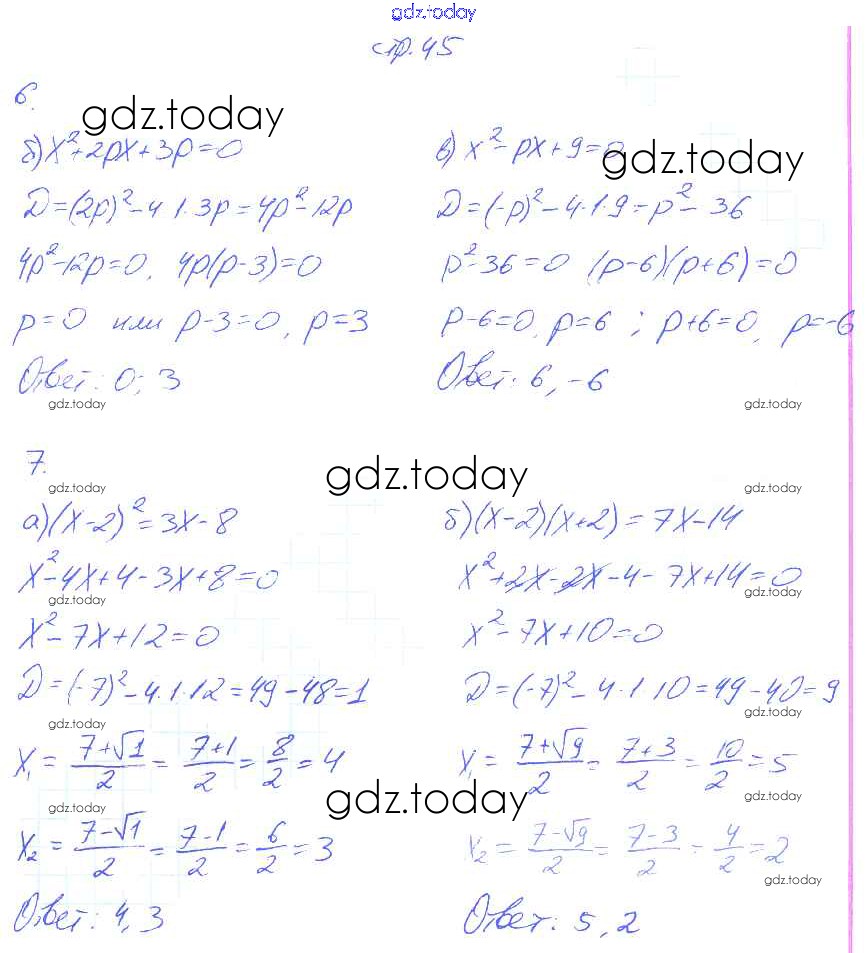 gdz.today
стр. 45
6.
gdz.today
б) x²+2px+3p=0
D=(2p)²-4·1·3p=4p²-12p
4p²-12p=0, 4p(p-3)=0
p=0 или p-3=0, p=3
Ответ: 0; 3
gdz.today
в) x²-px+9=0
gdz.today
D=(-p)²-4·1·9=p²-36
p²-36=0 (p-6)(p+6)=0
p-6=0, p=6 ; p+6=0, p=-6
Ответ: 6, -6
gdz.today
7.
gdz.today
gdz.today
gdz.today
а) (x-2)²=3x-8
x²-4x+4-3x+8=0
gdz.today
x²-7x+12=0
D=(-7)²-4·1·12=49-48=1
gdz.today
x₁=(7+√1)/2=(7+1)/2=8/2=4
gdz.today
gdz.today
x₂=(7-√1)/2=(7-1)/2=6/2=3
Ответ: 4, 3
б) (x-2)(x+2)=7x-14
x²+2x-2x-4-7x+14=0
gdz.today
x²-7x+10=0
D=(-7)²-4·1·10=49-40=9
gdz.today
x₁=(7+√9)/2=(7+3)/2=10/2=5
gdz.today
x₂=(7-√9)/2=(7-3)/2=4/2=2
gdz.today
Ответ: 5, 2